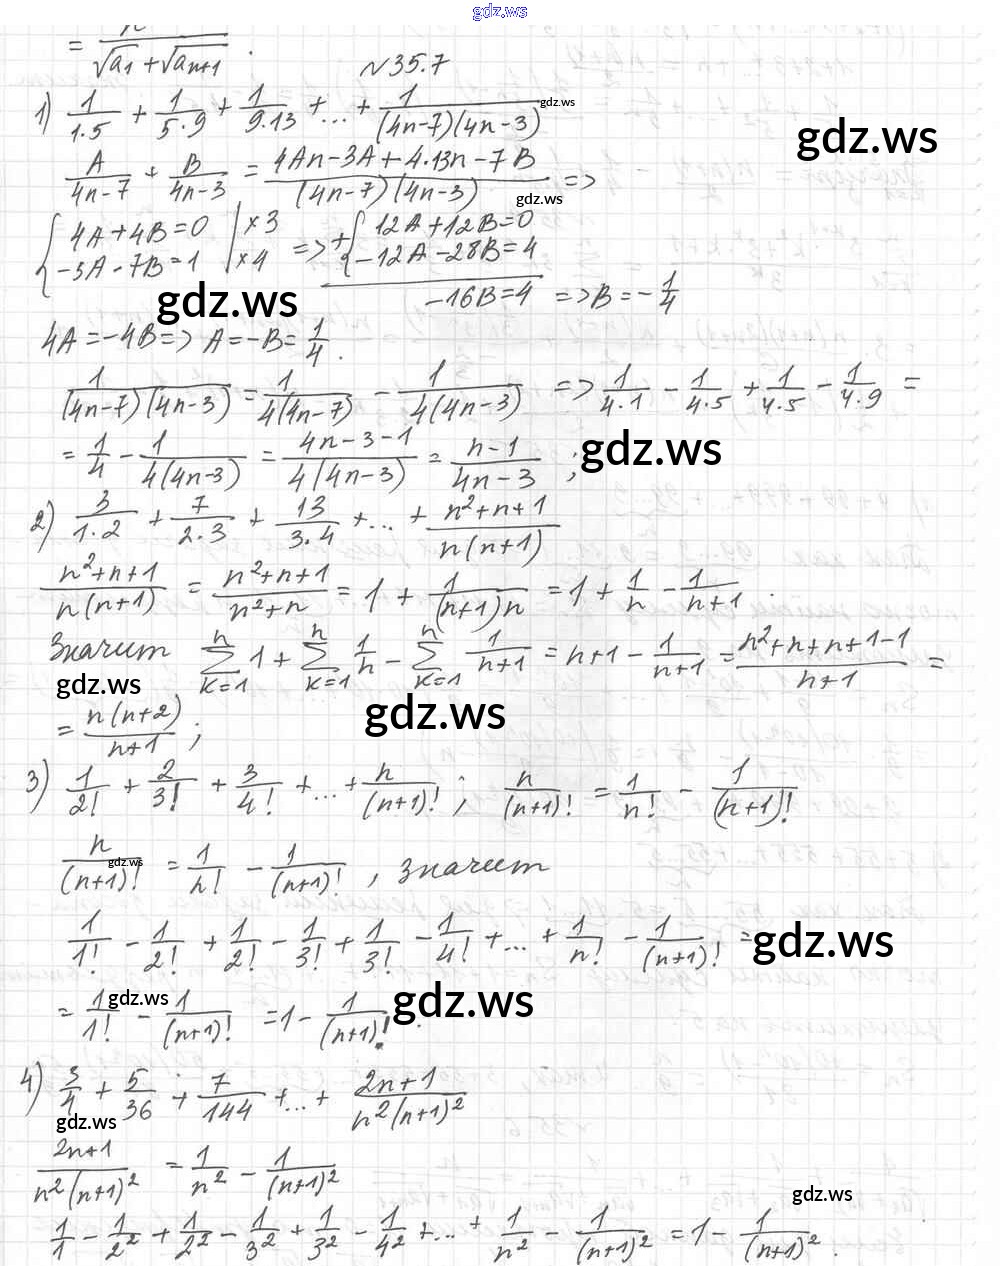 gdz.ws
= n/(√a₁ + √aₙ₊₁) .
№35.7
1) 1/(1·5) + 1/(5·9) + 1/(9·13) + ... + 1/((4n-7)(4n-3)) gdz.ws
gdz.ws
A/(4n-7) + B/(4n-3) = (4An-3A+4·13n-7B)/((4n-7)(4n-3)) =>
gdz.ws
{ 4A+4B=0 | ×3 => + { 12A+12B=0
-3A-7B=1 | ×4 -12A-28B=4
gdz.ws
-16B=4 => B=-1/4
4A=-4B => A=-B=1/4.
1/((4n-7)(4n-3)) = 1/(4(4n-7)) - 1/(4(4n-3)) => 1/(4·1) - 1/(4·5) + 1/(4·5) - 1/(4·9) =
= 1/4 - 1/(4(4n-3)) = (4n-3-1)/(4(4n-3)) = (n-1)/(4n-3) ;
gdz.ws
2) 3/(1·2) + 7/(2·3) + 13/(3·4) + ... + (n²+n+1)/(n(n+1))
(n²+n+1)/(n(n+1)) = (n²+n+1)/(n²+n) = 1 + 1/((n+1)n) = 1 + 1/n - 1/(n+1) .
Значит ∑ⁿₖ₌₁ 1 + ∑ⁿₖ₌₁ 1/n - ∑ⁿₖ₌₁ 1/(n+1) = n+1 - 1/(n+1) = (n²+n+n+1-1)/(n+1) =
gdz.ws
gdz.ws
= n(n+2)/(n+1) ;
3) 1/2! + 2/3! + 3/4! + ... + n/(n+1)! ; n/(n+1)! = 1/n! - 1/(n+1)!
n/(n+1)! = 1/n! - 1/(n+1)! , значит
gdz.ws
1/1! - 1/2! + 1/2! - 1/3! + 1/3! - 1/4! + ... + 1/n! - 1/(n+1)! =
gdz.ws
= 1/1! - 1/(n+1)! = 1 - 1/(n+1)! .
gdz.ws
gdz.ws
4) 3/4 + 5/36 + 7/144 + ... + (2n+1)/(n²(n+1)²)
gdz.ws
(2n+1)/(n²(n+1)²) = 1/n² - 1/(n+1)²
gdz.ws
1/1 - 1/2² + 1/2² - 1/3² + 1/3² - 1/4² + ... + 1/n² - 1/(n+1)² = 1 - 1/(n+1)² .